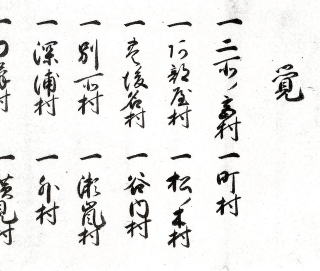 覚
一 二所ノ高村 一 町村
一 阿部屋村 一 松ノ木村
一 巻後谷村 一 谷内村
一 別所村 一 瀬嵐村
一 深浦村 一 外村
一 横見村